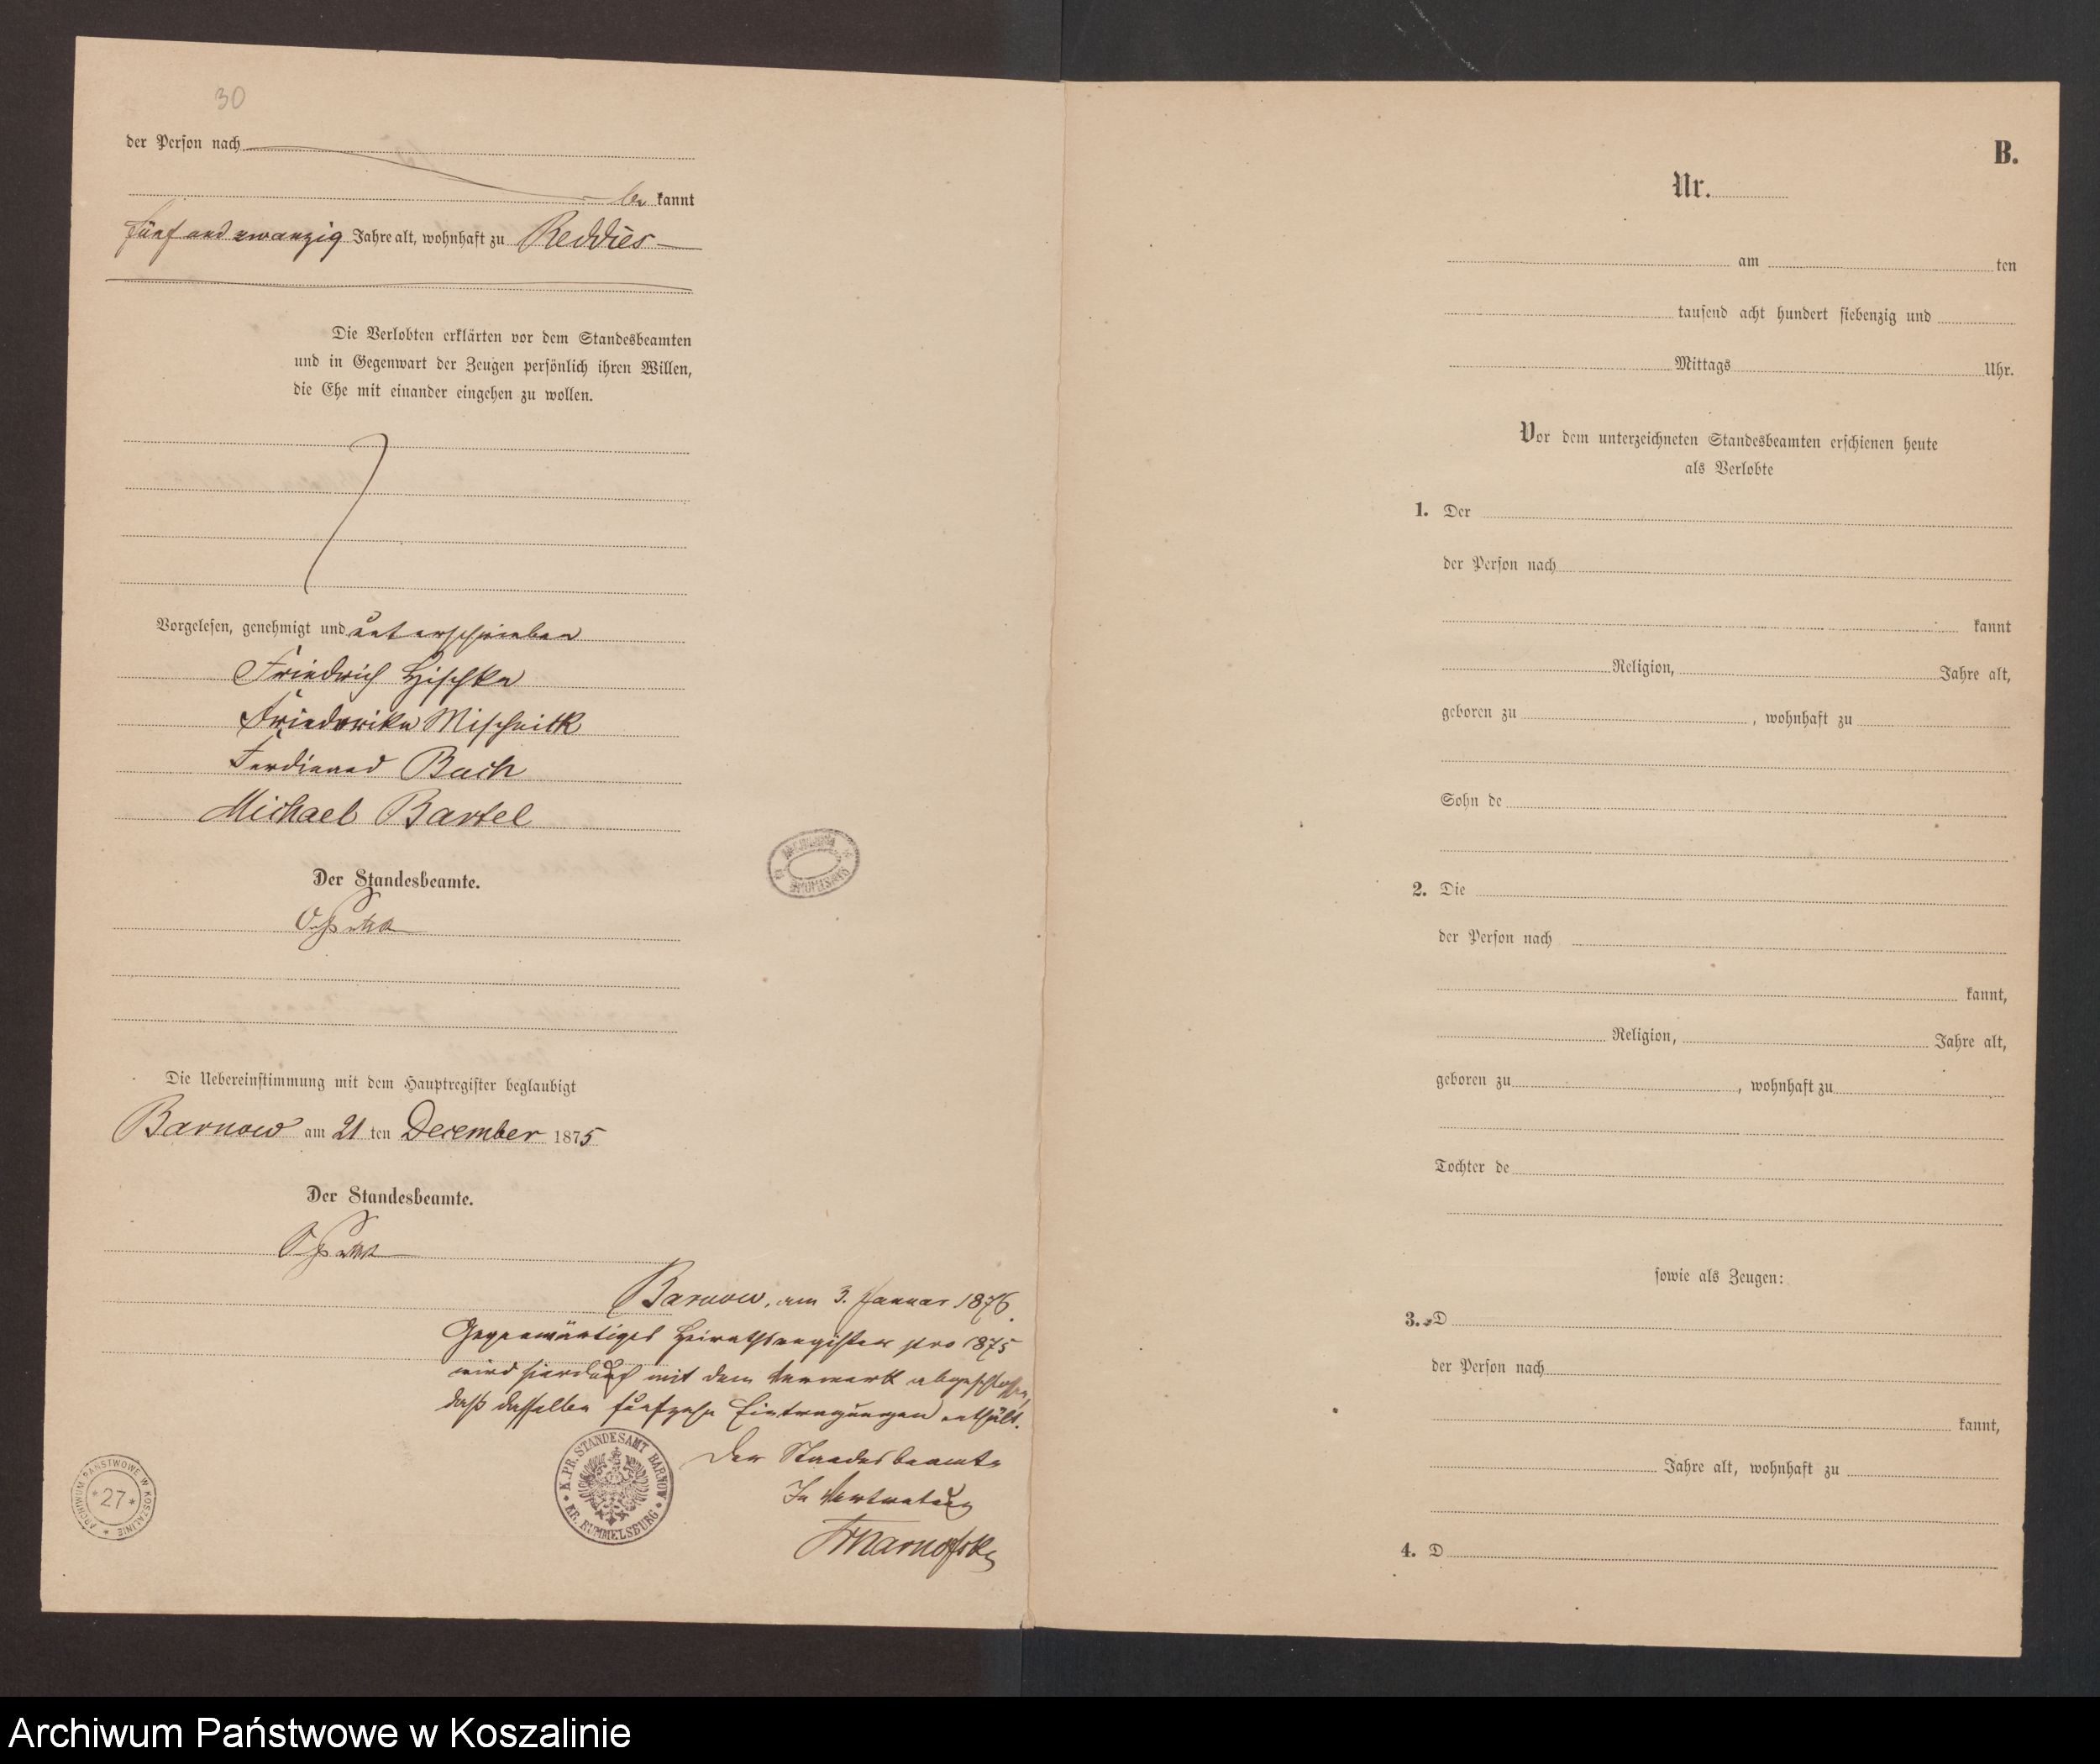 30
der Person nach
be kannt
fünf und zwanzig Jahre alt, wohnhaft zu Reddies
Die Verlobten erklärten vor dem Standesbeamten
und in Gegenwart der Zeugen persönlich ihren Willen,
die Ehe mit einander eingehen zu wollen.
Vorgelesen, genehmigt und unterschrieben
Friedrich Hischke
Friederike Mischnick
Ferdinand Buch
Michael Bartel
Der Standesbeamte.
Die Uebereinstimmung mit dem Hauptregister beglaubigt
Barnow am 21 ten December 1875
Der Standesbeamte.
Barnow, am 3. Januar 1876.
Gegenwärtiges Heirathsregister pro 1875
wird hierdurch mit dem Vermerk abgeschlossen,
daß dasselbe fünfzehn Eintragungen enthält.
Der Standesbeamte
In Vertretung
K. PR. STANDESAMT BARNOW
KR. RUMMELSBURG
ARCHIWUM PAŃSTWOWE W KOSZALINIE
* 27 *
B.
Nr.
am ten
tausend acht hundert siebenzig und
Mittags Uhr.
Vor dem unterzeichneten Standesbeamten erschienen heute
als Verlobte
1. Der
der Person nach
kannt
Religion, Jahre alt,
geboren zu , wohnhaft zu
Sohn de
2. Die
der Person nach
kannt,
Religion, Jahre alt,
geboren zu , wohnhaft zu
Tochter de
sowie als Zeugen:
3. D
der Person nach
kannt,
Jahre alt, wohnhaft zu
4. D
Archiwum Państwowe w Koszalinie